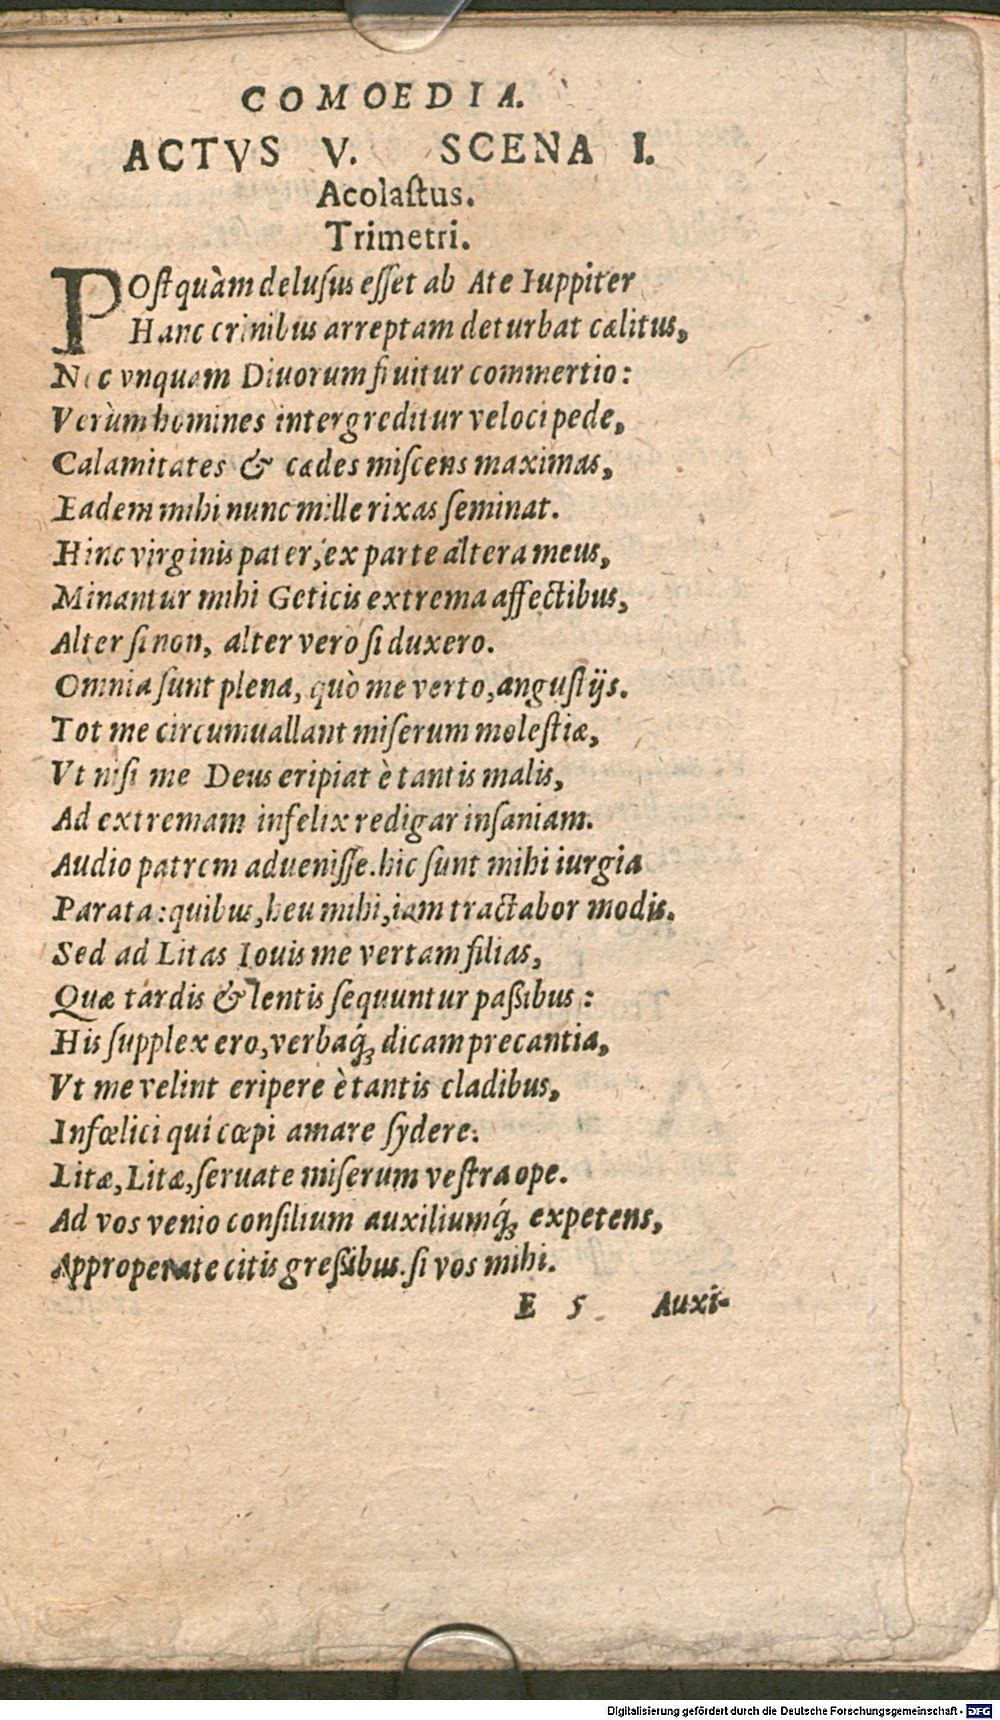 COMOEDIA.
ACTVS V. SCENA I.
Acolaſtus.
Trimetri.
POſtquàm deluſus eſſet ab Ate Iuppiter
Hanc crinibus arreptam deturbat cælitus,
Nec vnquam Diuorum fruitur commertio:
Verùm homines intergreditur veloci pede,
Calamitates & cædes miſcens maximas,
Eadem mihi nunc mille rixas ſeminat.
Hinc virginis pater, ex parte altera meus,
Minantur mihi Geticis extrema affectibus,
Alter ſi non, alter vero ſi duxero.
Omnia ſunt plena, quò me verto, anguſtijs.
Tot me circumuallant miſerum moleſtiæ,
Vt niſi me Deus eripiat è tantis malis,
Ad extremam infelix redigar inſaniam.
Audio patrem adueniſſe. hic ſunt mihi iurgia
Parata: quibus, heu mihi, iam tractabor modis.
Sed ad Litas Iouis me vertam filias,
Quæ tardis & lentis ſequuntur paßibus:
His ſupplex ero, verbaq́; dicam precantia,
Vt me velint eripere è tantis cladibus,
Infœlici qui cœpi amare ſydere.
Litæ, Litæ, ſeruate miſerum veſtra ope.
Ad vos venio conſilium auxiliumq́; expetens,
Approperate citis greßibus. ſi vos mihi.
E 5 Auxi-
Digitalisierung gefördert durch die Deutsche Forschungsgemeinschaft - DFG